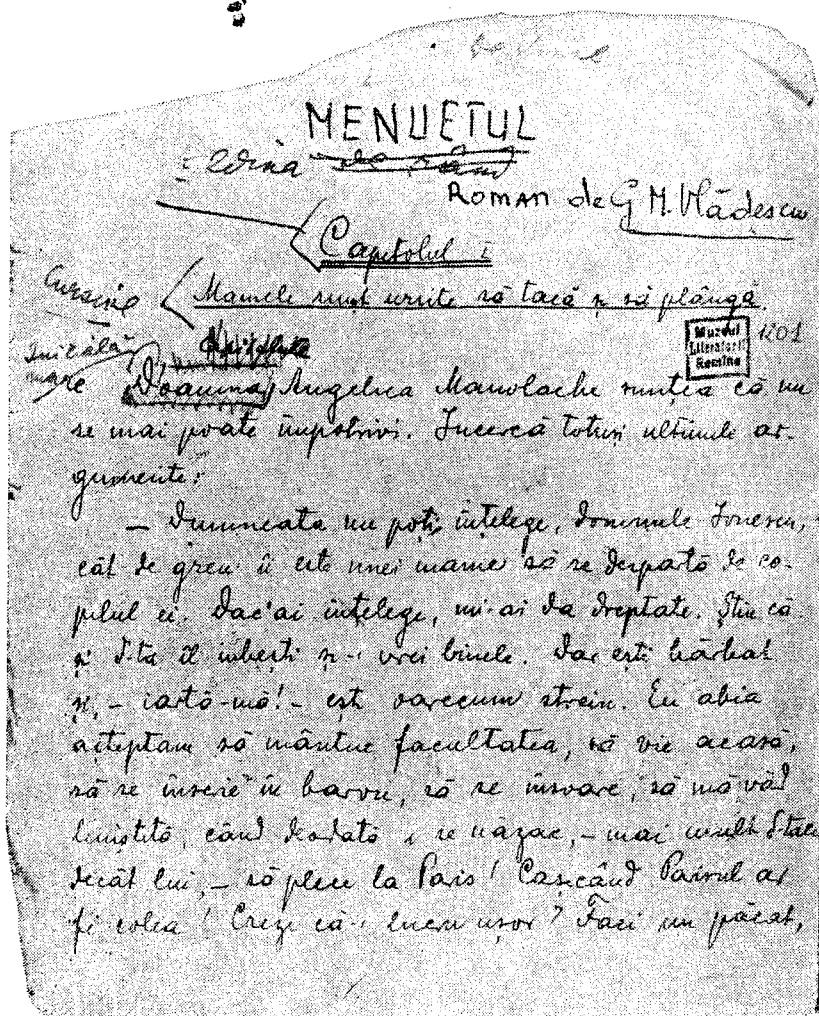 MENUETUL
ROMAN de G M. Vlădescu
Capitolul I
Cursive
Mamele sunt ursite să tacă și să plângă.
Muzeul
Literaturii
Române
1201
Inițială
mare
Doamna Angelica Manolache simțea că nu
se mai poate împotrivi. Încercă totuși ultimele ar-
gumente:
— Dumneata nu poți înțelege, domnule Ionescu,
cât de greu îi este unei mame să se despartă de co-
pilul ei. Dac'ai înțelege, mi-ai da dreptate. Știu că
și d-ta îl iubești și-i vrei binele. Dar ești bărbat
și, - iartă-mă! - ești oarecum strein. Eu abia
așteptam să mântue facultatea, să vie acasă,
să se înscrie în barou, să se însoare, să mă văd
liniștită, când deodată i se năzare, - mai mult d-tale
decât lui, - să plece la Paris! Ca și când Parisul ar
fi colea! Crezi că-i lucru ușor? Faci un păcat,